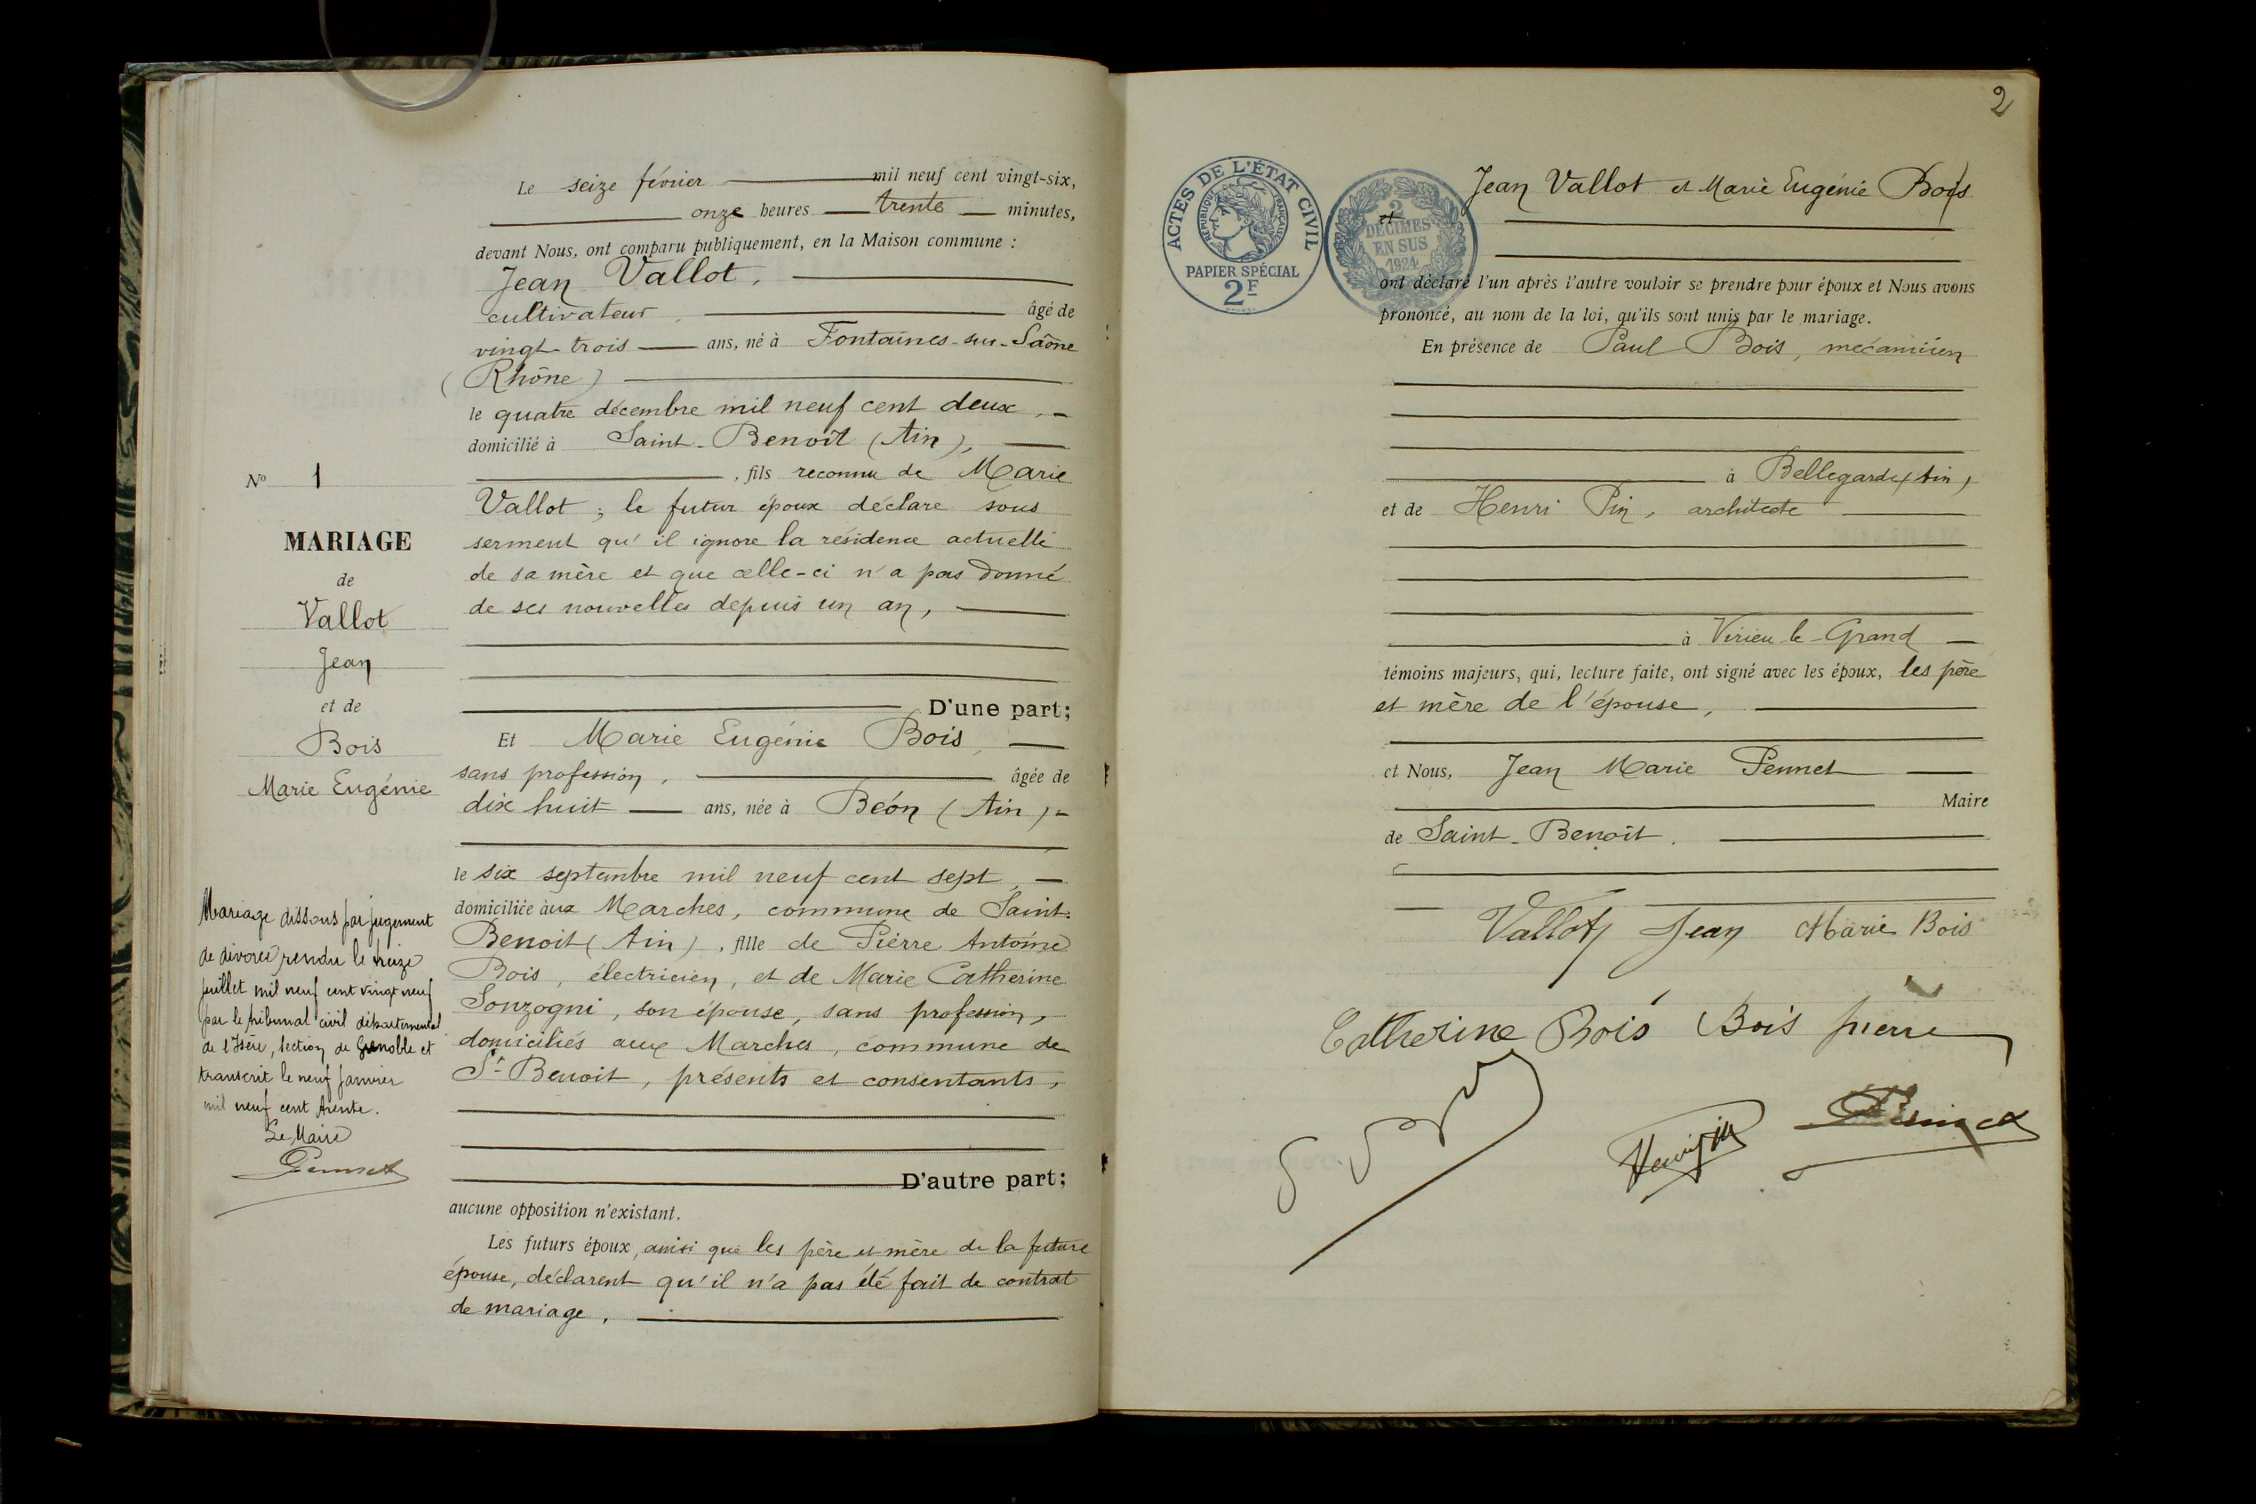 Le seize février mil neuf cent vingt-six,
onze heures trente minutes,
devant Nous, ont comparu publiquement, en la Maison commune :
Jean Vallot,
cultivateur, âgé de
vingt-trois ans, né à Fontaines-sur-Saône
(Rhône)
le quatre décembre mil neuf cent deux,
domicilié à Saint-Benoît (Ain),
, fils reconnu de Marie
Vallot ; le futur époux déclare sous
serment qu'il ignore la résidence actuelle
de sa mère et que celle-ci n'a pas donné
de ses nouvelles depuis un an,
D'une part;
Et Marie Eugénie Bois,
sans profession, âgée de
dix huit ans, née à Béon (Ain)
le six septembre mil neuf cent sept,
domiciliée aux Marches, commune de Saint-
Benoit (Ain), fille de Pierre Antoine
Bois, électricien, et de Marie Catherine
Sonzogni, son épouse, sans profession,
domiciliés aux Marches, commune de
St Benoit, présents et consentants,
D'autre part;
aucune opposition n'existant.
Les futurs époux, ainsi que les père et mère de la future
épouse, déclarent qu'il n'a pas été fait de contrat
de mariage.
No 1
MARIAGE
de
Vallot
Jean
et de
Bois
Marie Eugénie
Mariage dissous par jugement
de divorce rendu le treize
juillet mil neuf cent vingt neuf
par le tribunal civil départemental
de l'Isère, section de Grenoble et
transcrit le neuf janvier
mil neuf cent trente.
Le Maire
Pennet
2
ACTES DE L'ÉTAT CIVIL
RÉPUBLIQUE FRANÇAISE
PAPIER SPÉCIAL
2F
2
DÉCIMES
EN SUS
1924
Jean Vallot et Marie Eugénie Bois
et
ont déclaré l'un après l'autre vouloir se prendre pour époux et Nous avons
prononcé, au nom de la loi, qu'ils sont unis par le mariage.
En présence de Paul Bois, mécanicien
à Bellegarde (Ain)
et de Henri Pin, architecte
à Virieu-le-Grand
témoins majeurs, qui, lecture faite, ont signé avec les époux, les père
et mère de l'épouse,
et Nous, Jean Marie Pennet
Maire
de Saint-Benoît.
Vallot Jean Marie Bois
Catherine Bois Bois pierre
Henri Pin Pennet